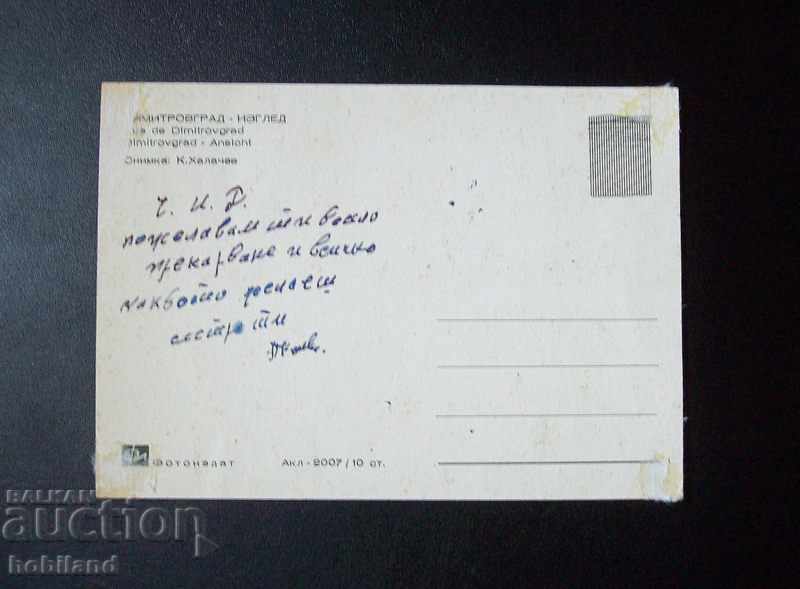 ДИМИТРОВГРАД - ИЗГЛЕД
Vue de Dimitrovgrad
Dimitrovgrad - Ansicht
Снимка: К. Халачев
Ч. И. Р.
пожелавам ти весело
прекарване и всичко
каквото желаеш
сестра ти
Фотоиздат
Акл - 2007 / 10 ст.
BALKAN
auction
hobiland